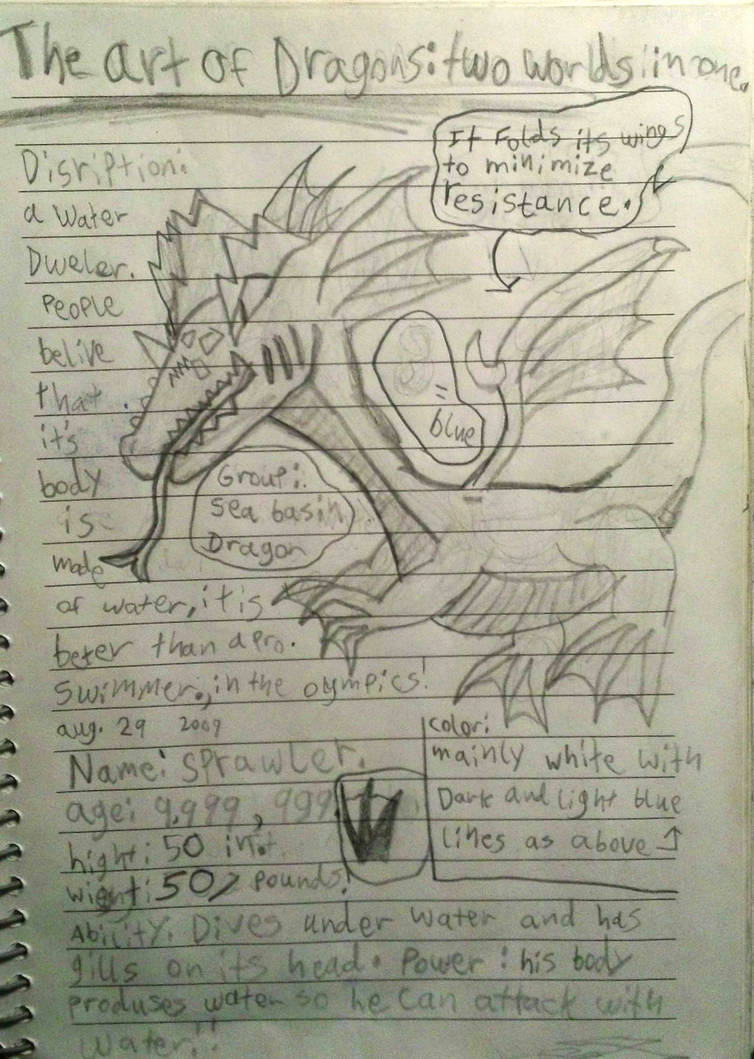 The art of Dragons: two worlds in one.
It Folds its wings
to minimize
resistance.
Disription:
a water
Dweler.
People
belive
that
it's
body
is
made
of water, it is
beter than a pro.
swimmer., in the olympics!
=
blue
Group:
Sea basin
Dragon
aug. 29 2009
Name: Sprawler.
age: 9,999, 999
hight: 50 in.
wight: 507 pounds!
color:
mainly white with
Dark and light blue
lines as above ↑
Ability: Dives under water and has
gills on its head. Power: his body
produses water so he can attack with
water!!